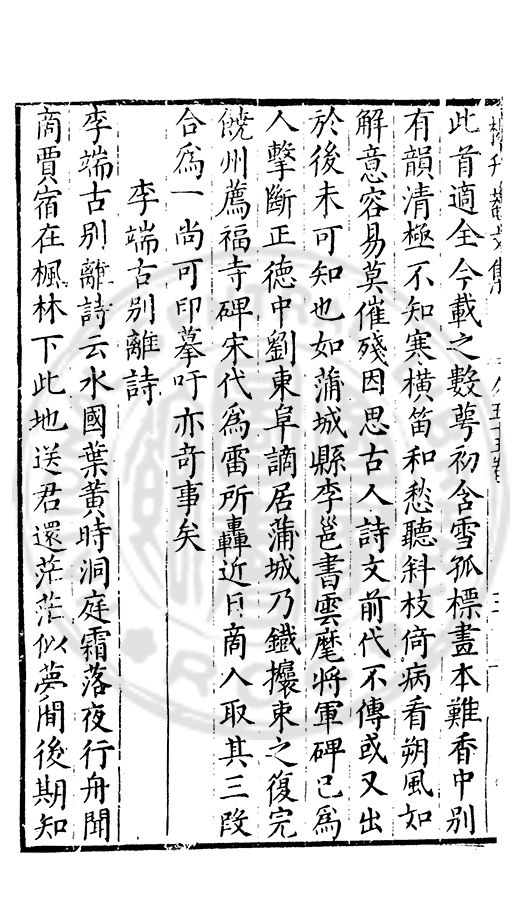 此首適全今載之數萼初含雪孤標畫本難香中別
有韻清極不知寒橫笛和愁聽斜枝倚病看朔風如
解意容易莫催殘因思古人詩文前代不傳或又出
於後未可知也如蒲城縣李邕書雲麾將軍碑已爲
人擊斷正德中劉東阜謫居蒲城乃鐵攘束之復完
饒州薦福寺碑宋代爲雷所轟近日商人取其三段
合爲一尚可印摹吁亦奇事矣
李端古别離詩
李端古别離詩云水國葉黄時洞庭霜落夜行舟聞
商賈宿在楓林下此地送君還茫茫似夢間後期知